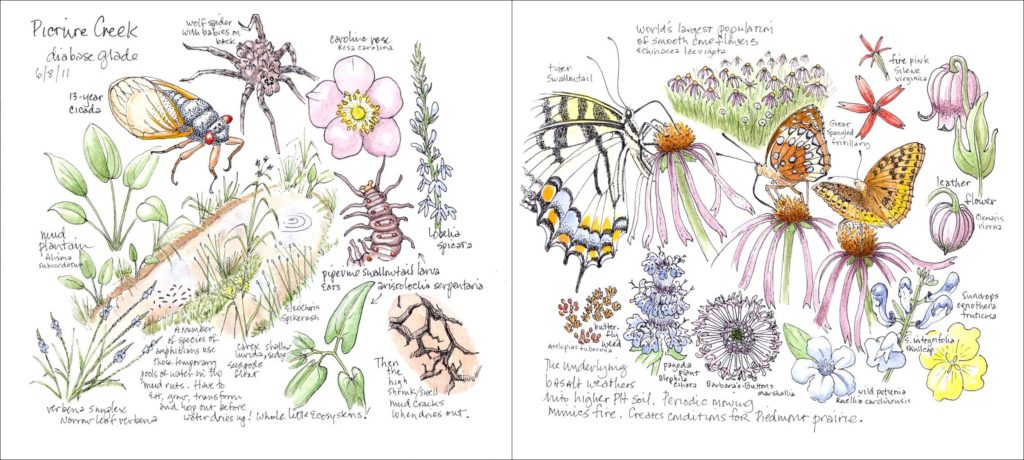 Picture Creek
diabase glade
6/8/11
wolf spider
with babies on
back
carolina rose
Rosa carolina
13-year
cicada
mud
plantain
Alisma
subcordatum
Lobelia
spicata
pipevine swallowtail larva
Eats aristolochia serpentaria
Eleocharis
Spikerush
A number
of species of
amphibians use
these temporary
pools of water in the
mud ruts. Have to
Eat, grow, transform
and hop out before
water dries up! Whole little Ecosystems!
carex shallow
lurida, sedge
float
Then
the
high
shrink/swell
mud cracks
when dries out.
verbena simplex
Narrow leaf verbena
world's largest population
of smooth coneflowers
Echinacea laevigata
tiger
Swallowtail
fire pink
Silene
virginica
Great
Spangled
fritillary
leather
flower
Clematis
viorna
butter-
fly
weed
Asclepias tuberosa
pagoda
plant
Blephilia
ciliata
Barbara's-Buttons
marshallia
wild petunia
Ruellia caroliniensis
Sundrops
oenothera
fruticosa
S. integrifolia
skullcap
The underlying
basalt weathers
into higher PH soil. Periodic mowing
mimics fire. Creates conditions for Piedmont prairie.